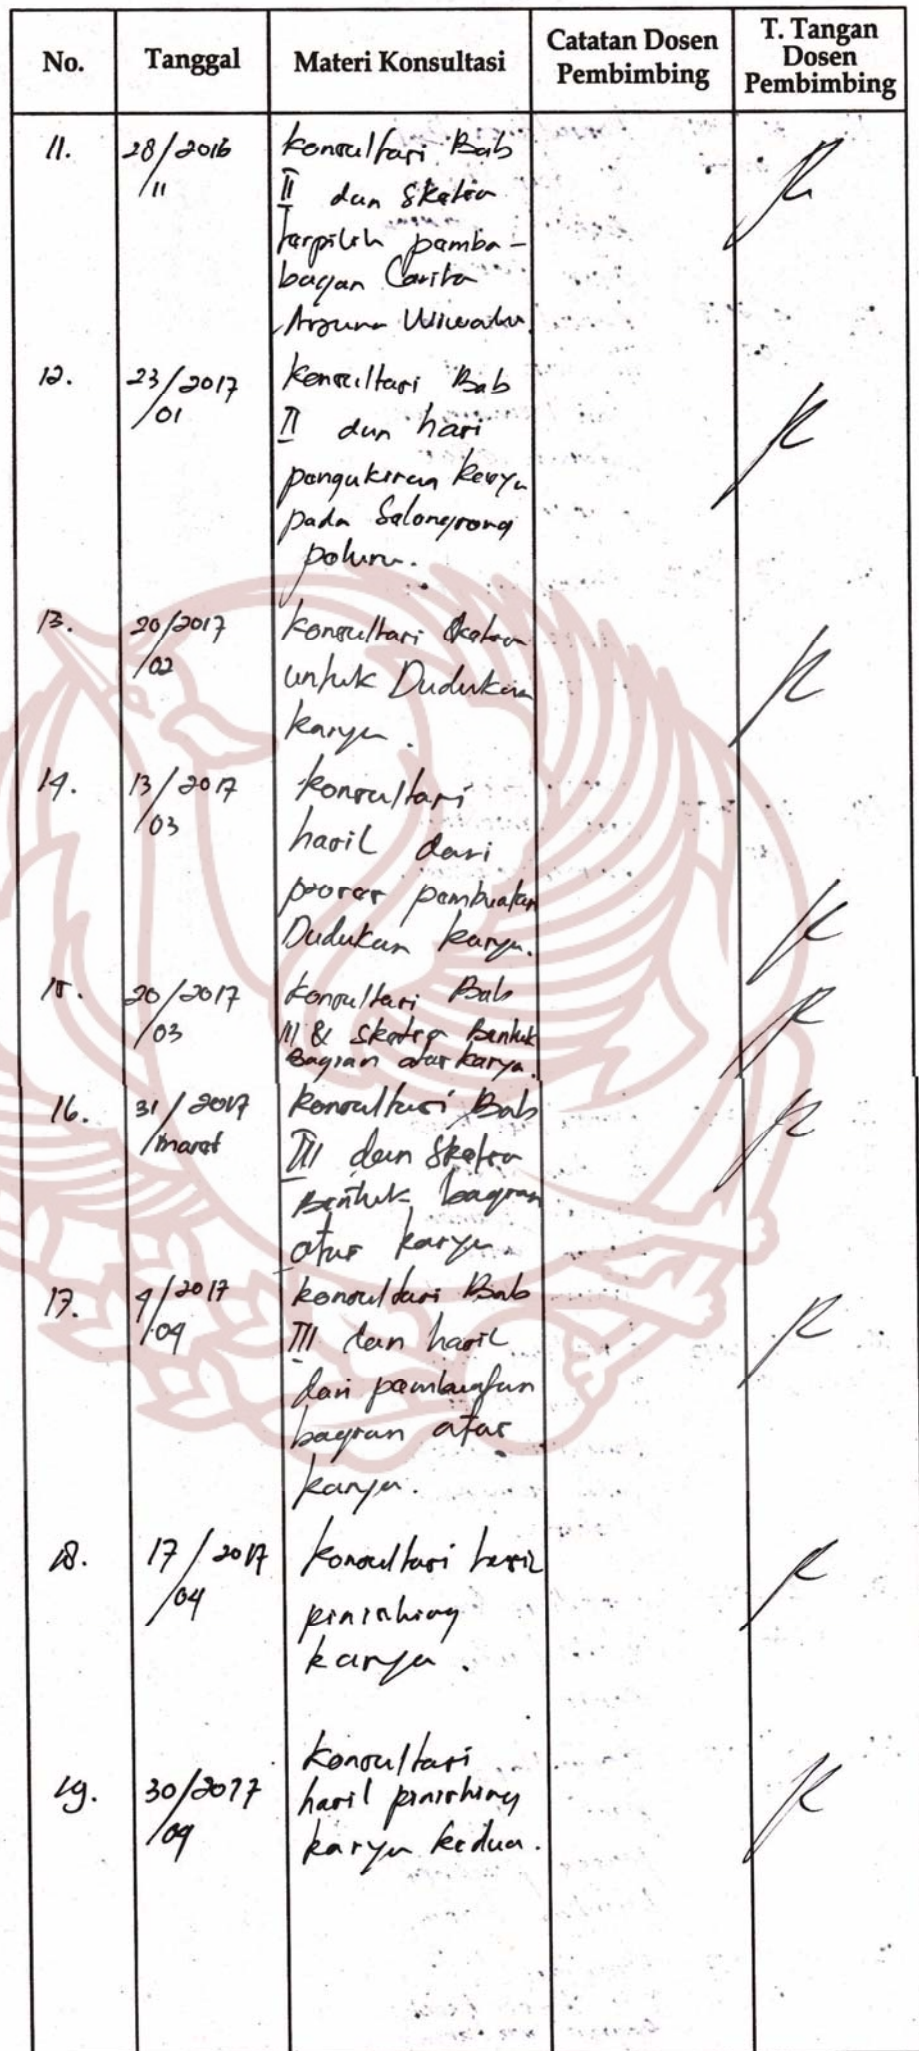 No. Tanggal Materi Konsultasi Catatan Dosen Pembimbing T. Tangan Dosen Pembimbing
11. 28/2016 konsultasi Bab
/11 II dan Sketsa
terpilih pemba-
bagan Carita
Arjuna Wiwaha.
12. 23/2017 konsultasi Bab
/01 II dan hasil
pengukiran karya
pada
13. 20/2017 konsultasi Sketsa
/02 untuk Dudukan
karya.
14. 13/2017 konsultasi
/03 hasil dari
proses pembuatan
Dudukan karya.
15. 20/2017 konsultasi Bab
/03 III & sketsa Bentuk
Bagian atas karya.
16. 31/2017 konsultasi Bab
/maret III dan Sketsa
Bentuk bagian
atas karya.
17. 4/2017 konsultasi Bab
/04 III dan hasil
dari pembuatan
bagian atas
karya.
18. 17/2017 konsultasi hasil
/04 pinishing
karya.
19. 30/2017 konsultasi
/04 hasil pinishing
karya kedua.